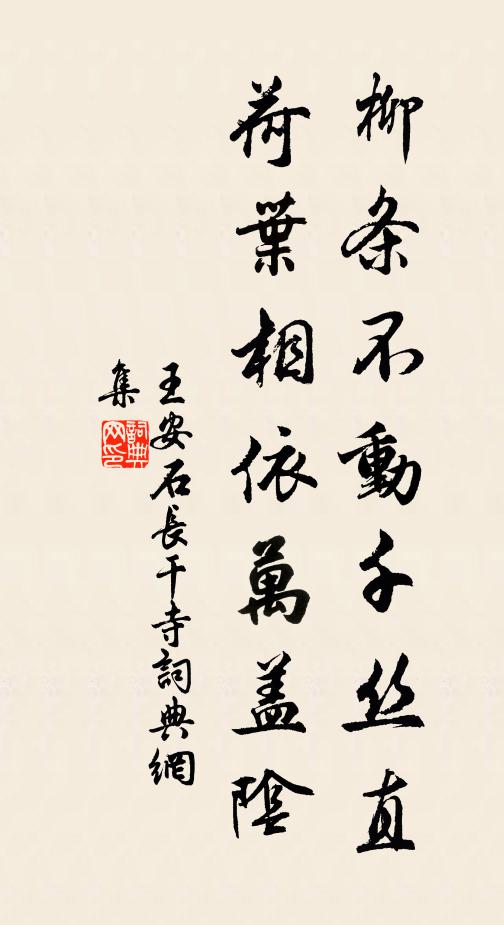 柳条不動千丝直
荷葉相依萬盖陰
王安石長干寺詞典網
集
詞典
网印